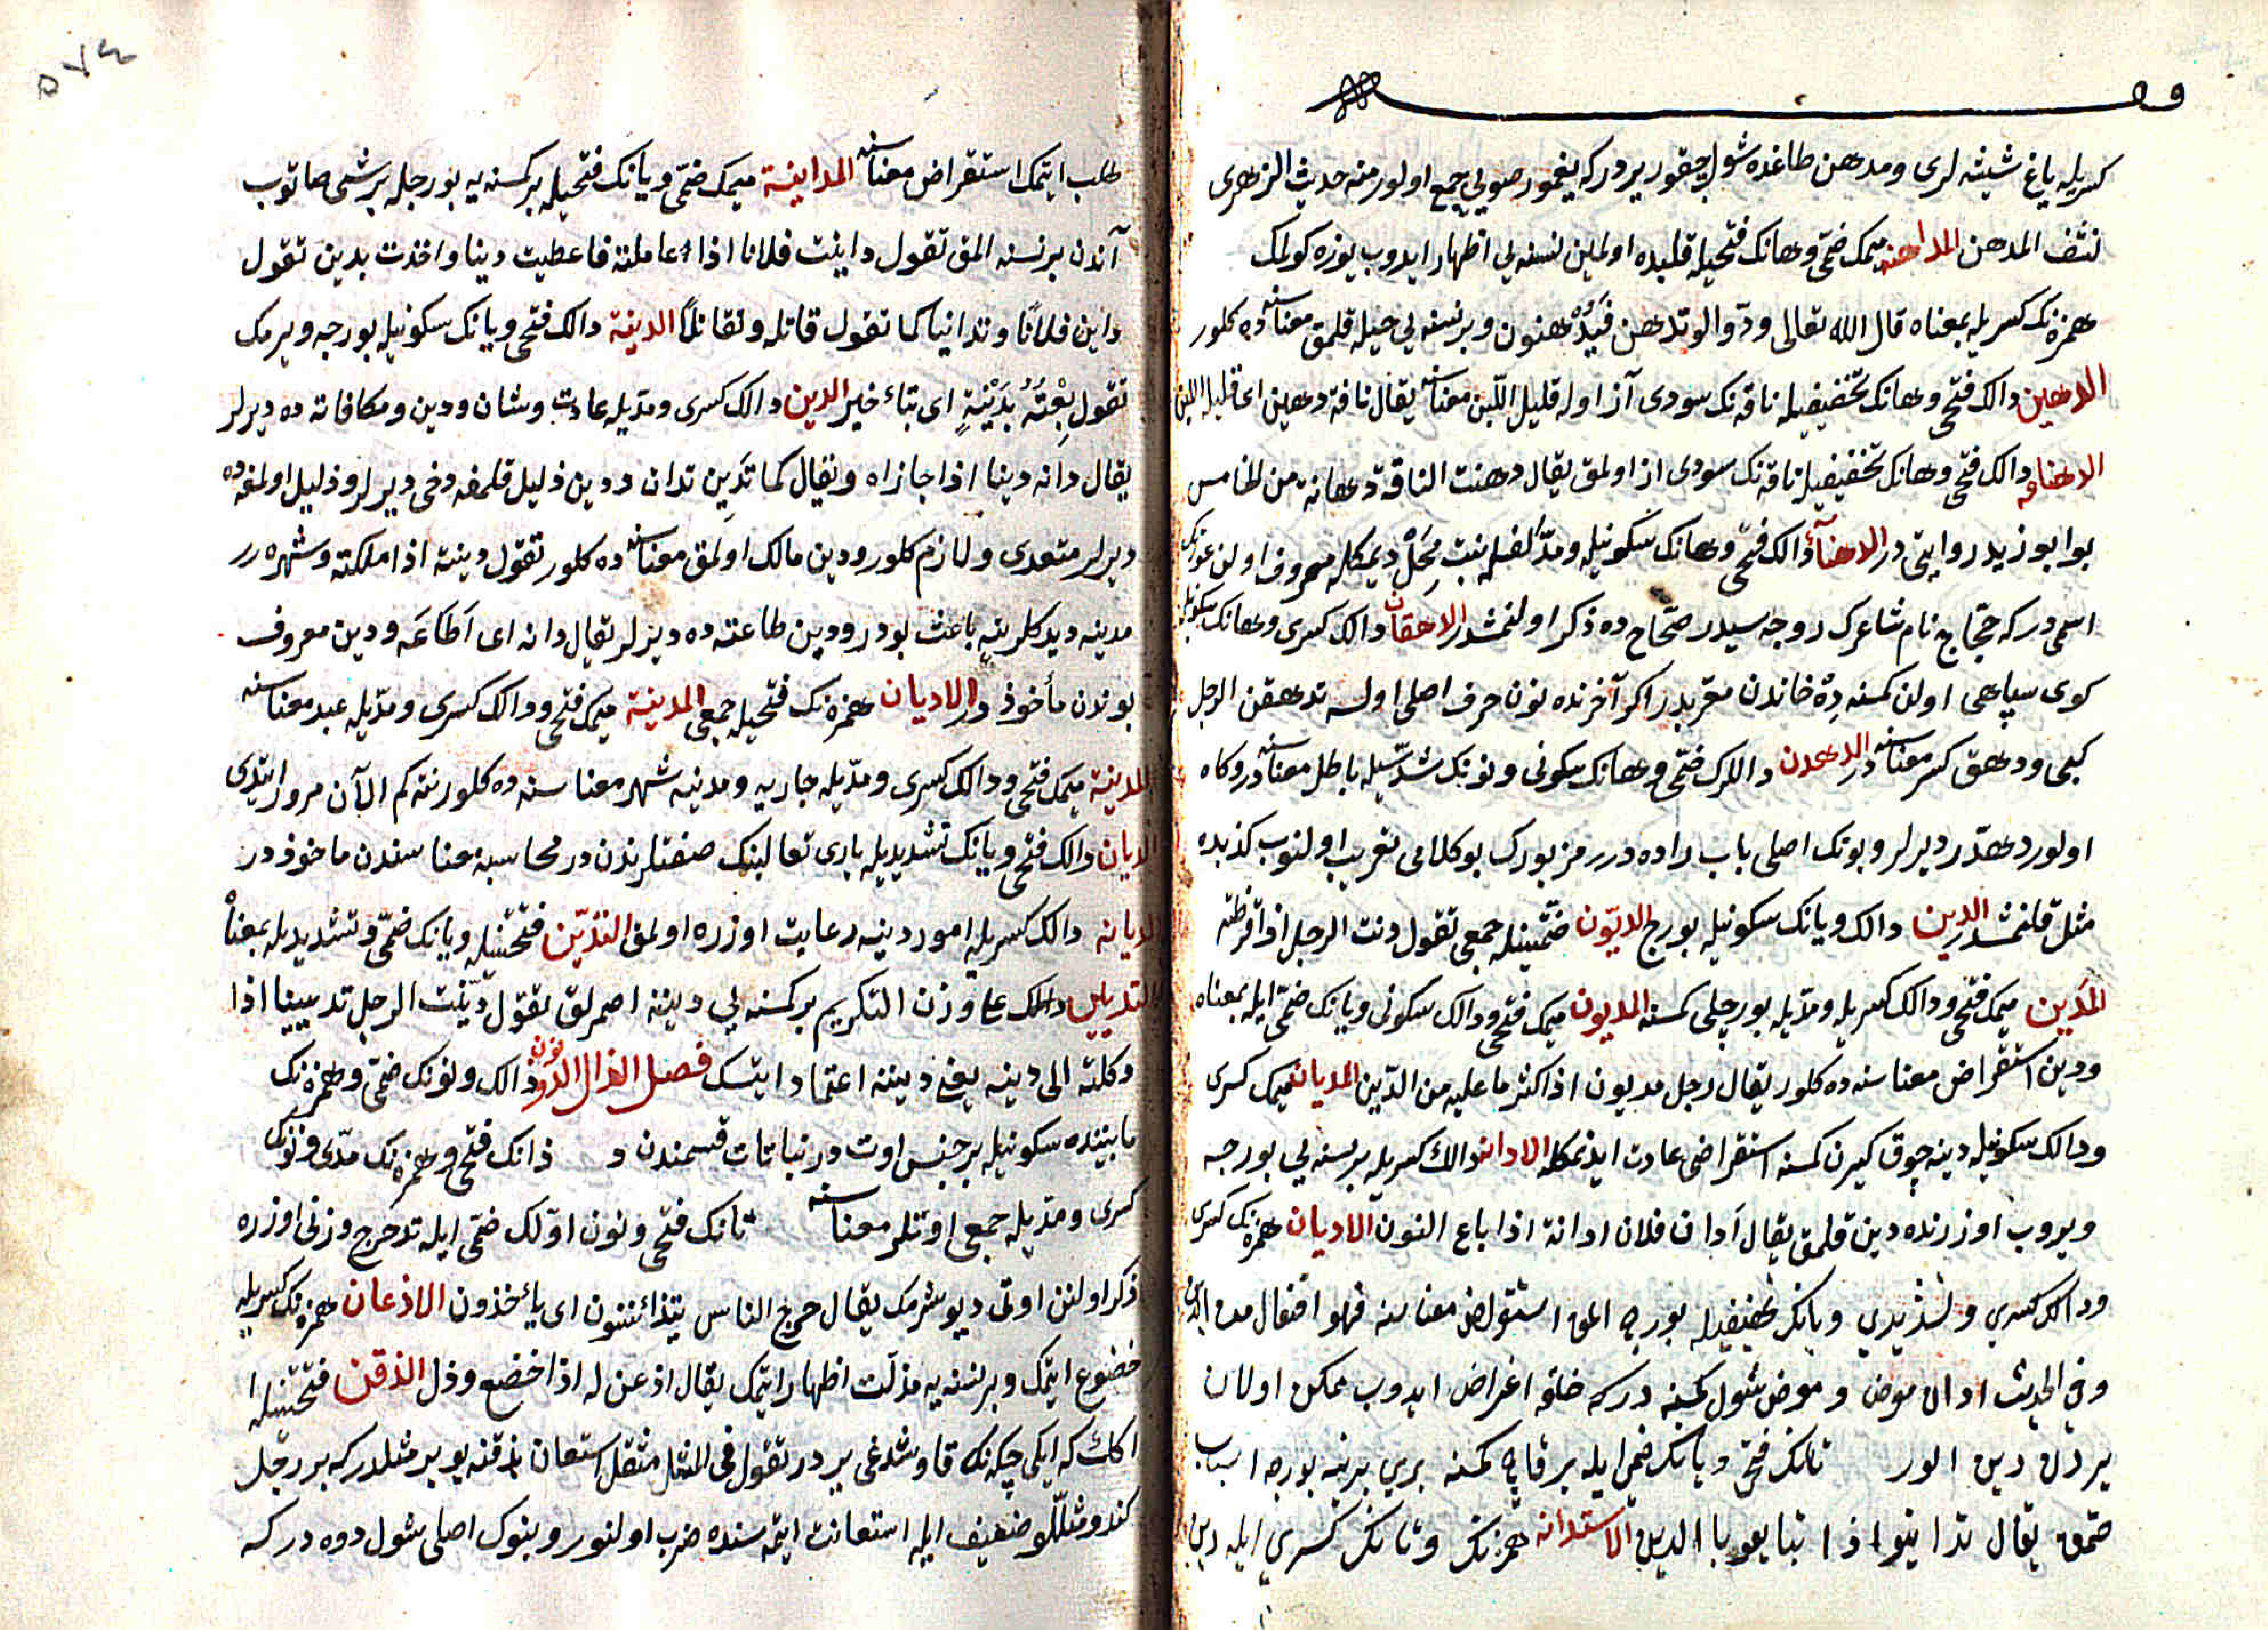 كسريله ياغ شيشه لرى ومدهن طاغده شول چقور يردركه يغمور صويى جمع اولور منه حديث الزهرى
نشف المدهن المداهنه ميمك ضمى وهانك فتحيله قلبده اولمين نسنه يى اظهار ايدوب يوزه كولمك
همزه نك كسريله بمعناه قال الله تعالى ودوا لو تدهن فيدهنون وبر نسنه يى حيله قلمق معناسنه ده كلور
الدهين دالك فتحى وهانك تخفيفيله ناقه نك سودى آز اوله قليل اللبن معناسنه يقال ناقة دهين اى قليلة اللبن
الدهانه دالك فتحى وهانك تخفيفيله ناقه نك سودى از اولمق يقال دهنت الناقة دهانة من الخامس
بو ابو زيد روايتى در الدهنآء دالك فتحى وهانك سكونيله ومد الفيله بنت مسحل ديمكله معروف اولن عورتك
اسمى در كه حجاج نام شاعرك زوجه سيدر صحاح ده ذكر اولنمشدر الدهقان دالك كسرى وهانك سكونيله
كوى سپاهى اولن كمسنه ده خاندن معربدر اكر آخرنده نون حرف اصلى اولسه تدهقن الرجل
كبى ودهق كسر معناسنه در الدهدن دالرك ضمى وهانك سكونى ونونك شديله باطل معناسنه در وكاه
اولور دهدر ديرلر وبونك اصلى باب راده در رمزبورك بو كلامى تعريب اولنوب كذبده
مثل قلنمشدر الدين دالك ويانك سكونيله بورج الديون ضمتينله جمعى تقول دنت الرجل اذا اقرضته
المدين ميمك فتحى ودالك كسريله ومديله بورجلى كمسنه المديون ميمك فتحى ودالك سكونى ويانك ضمى ايله بمعناه
ودين استقراض معناسنه ده كلور يقال رجل مديون اذا كثر ما عليه من الدين المديان ميمك كسرى
ودالك سكونيله دينه چوق كيرن كمسنه استقراضى عادت ايدنمكله الادانه دالك كسريله بر نسنه يى بورجه
ويروب اوزرنده دين قلمق يقال ادان فلان ادانة اذا باع النون الاديان همزه نك كسرى
ودالك كسرى وتشديدى ويانك تخفيفيله بورجه المق استقراض معناسنه فهو افتعال من الدين
وفى الحديث ادان معرض ومعرض شول كمسنه دركه خلقه اغراض ايدوب ممكن اولان
يردن دين الور تانك فتحى ويانك ضمى ايله بر قاچ كمسنه برى برينه بورجه اسباب
صتمق يقال تداينوا اذا تبايعوا بالدين الاستدانه همزه نك وتانك كسرى ايله دين
٥٧٤
طلب ايتمك استقراض معناسنه المداينة ميمك ضمى ويانك فتحيله بر كمسنه يه بورجله بر شى صاتوب
آندن بر نسنه المق تقول داينت فلانا اذا عاملته فاعطيت دينا واخذت بدين تقول
داين فلانا وتداينا كما تقول قاتله وتقاتلا الدينة دالك فتحى ويانك سكونيله بورجه ويرمك
تقول بعته بدينة اى بتاء خير الدين دالك كسرى ومديله عادت وشان ودين ومكافاته ده ديرلر
يقال دانه دينا اذا جازاه ويقال كما تدين تدان ودين ذليل قلمغه دخى ديرلر وذليل اولمغه ده
ديرلر متعدى ولازم كلور ودين مالك اولمق معناسنه ده كلور تقول دينته اذا ملكته وشهره رر
مدينه ديدكلرينه باعث بودر ودين طاعته ده ديرلر يقال دانه اى اطاعه ودين معروف
بوندن مأخوذ در الاديان همزه نك فتحيله جمعى المدينة ميمك فتحى ودالك كسرى ومديله عبد معناسنه
المدينة ميمك فتحى ودالك كسرى ومديله جاريه ومدينه شهر معناسنه ده كلور نته كم الآن مرور ايتدى
الديان دالك فتحى ويانك تشديديله بارى تعالينك صفتلرندن در محاسبه معناسندن ماخوذ در
الديانه دالك كسريله امور دينيه رعايت اوزره اولمق التدين فتحتينله ويانك ضمى وتشديديله بمعناه
التديين دالك على وزن التكريم بر كمسنه يى ديننه اصمرلق تقول دينت الرجل تديينا اذا
وكلته الى دينه يعنى ديننه اعتماد ايتسك فصل الذال الذؤنون ذالك ونونك ضمى وهمزه نك
مابيننده سكونيله بر جنس اوت در نباتات قسمندن د ذانك فتحى وهمزه نك مدى ونونك
كسرى ومديله جمعى اوتلر معناسنه تانك فتحى ونون اولك ضمى ايله تدحرج وزنى اوزره
ذكر اولنن اوتى ديوشرمك يقال خرج الناس يتذأننون اى يأخذون الاذعان همزه نك كسريله
خضوع ايتمك وبر نسنه يه مذلت اظهار ايتمك يقال اذعن له اذا خضع وذل الذقن فتحتينله
اكك كه ايكى چكه نك قاوشدغى يردر تقول فى المثل مثقل استعان بذقنه بو بر مثلدركه بر رجل
كندو مثللو ضعيف ايله استعانت ايتمه سنده ضرب اولنور وبنوك اصلى شول دوه دركه